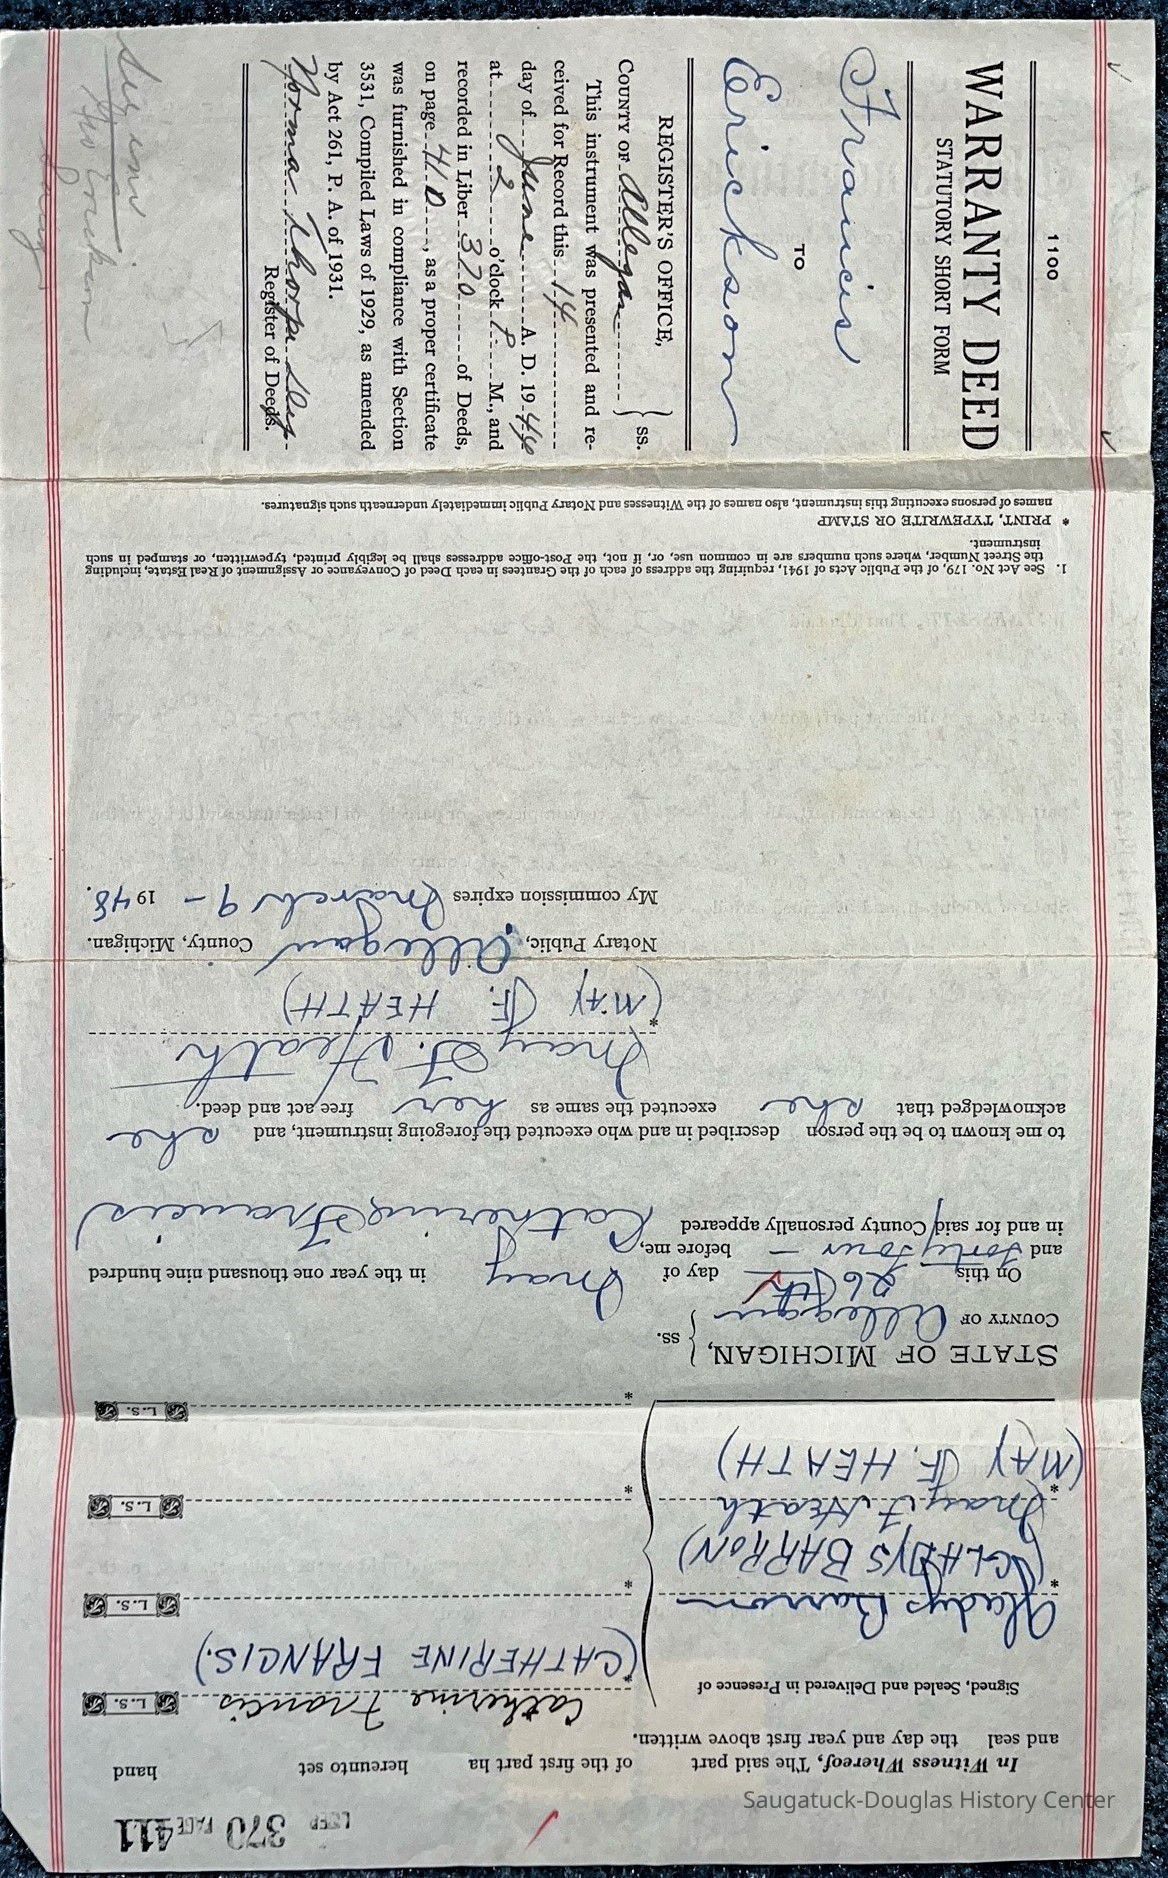 1100
WARRANTY DEED
STATUTORY SHORT FORM
Francis
TO
Erickson
REGISTER'S OFFICE,
COUNTY OF Allegan } ss.
This instrument was presented and re-
ceived for Record this 14
day of June A. D. 1944
at 2 o'clock P. M., and
recorded in Liber 370 of Deeds,
on page 410, as a proper certificate
was furnished in compliance with Section
3531, Compiled Laws of 1929, as amended
by Act 261, P. A. of 1931.
Norma Thorpe Dep
Register of Deeds.
LIBER 370 PAGE 411
In Witness Whereof, The said part of the first part ha hereunto set hand
and seal the day and year first above written.
Signed, Sealed and Delivered in Presence of
Catherine Francis L. S.
* (CATHERINE FRANCIS.)
Gladys Barron
* (GLADYS BARRON)
* L. S.
May F. Heath
* (MAY F. HEATH)
* L. S.
* L. S.
STATE OF MICHIGAN, } ss.
COUNTY OF Allegan
On this 26th day of May in the year one thousand nine hundred
and forty four — before me,
in and for said County personally appeared Catherine Francis
to me known to be the person described in and who executed the foregoing instrument, and she
acknowledged that she executed the same as her free act and deed.
May F. Heath
* (MAY F. HEATH)
Notary Public, Allegan County, Michigan.
My commission expires March 9 - 1948.
1. See Act No. 179, of the Public Acts of 1941, requiring the address of each of the Grantees in each Deed of Conveyance or Assignment of Real Estate, including
the Street Number, where such numbers are in common use, or, if not, the Post-office addresses shall be legibly printed, typewritten, or stamped in such
instrument.
* PRINT, TYPEWRITE OR STAMP
names of persons executing this instrument, also names of the Witnesses and Notary Public immediately underneath such signatures.
Saugatuck-Douglas History Center